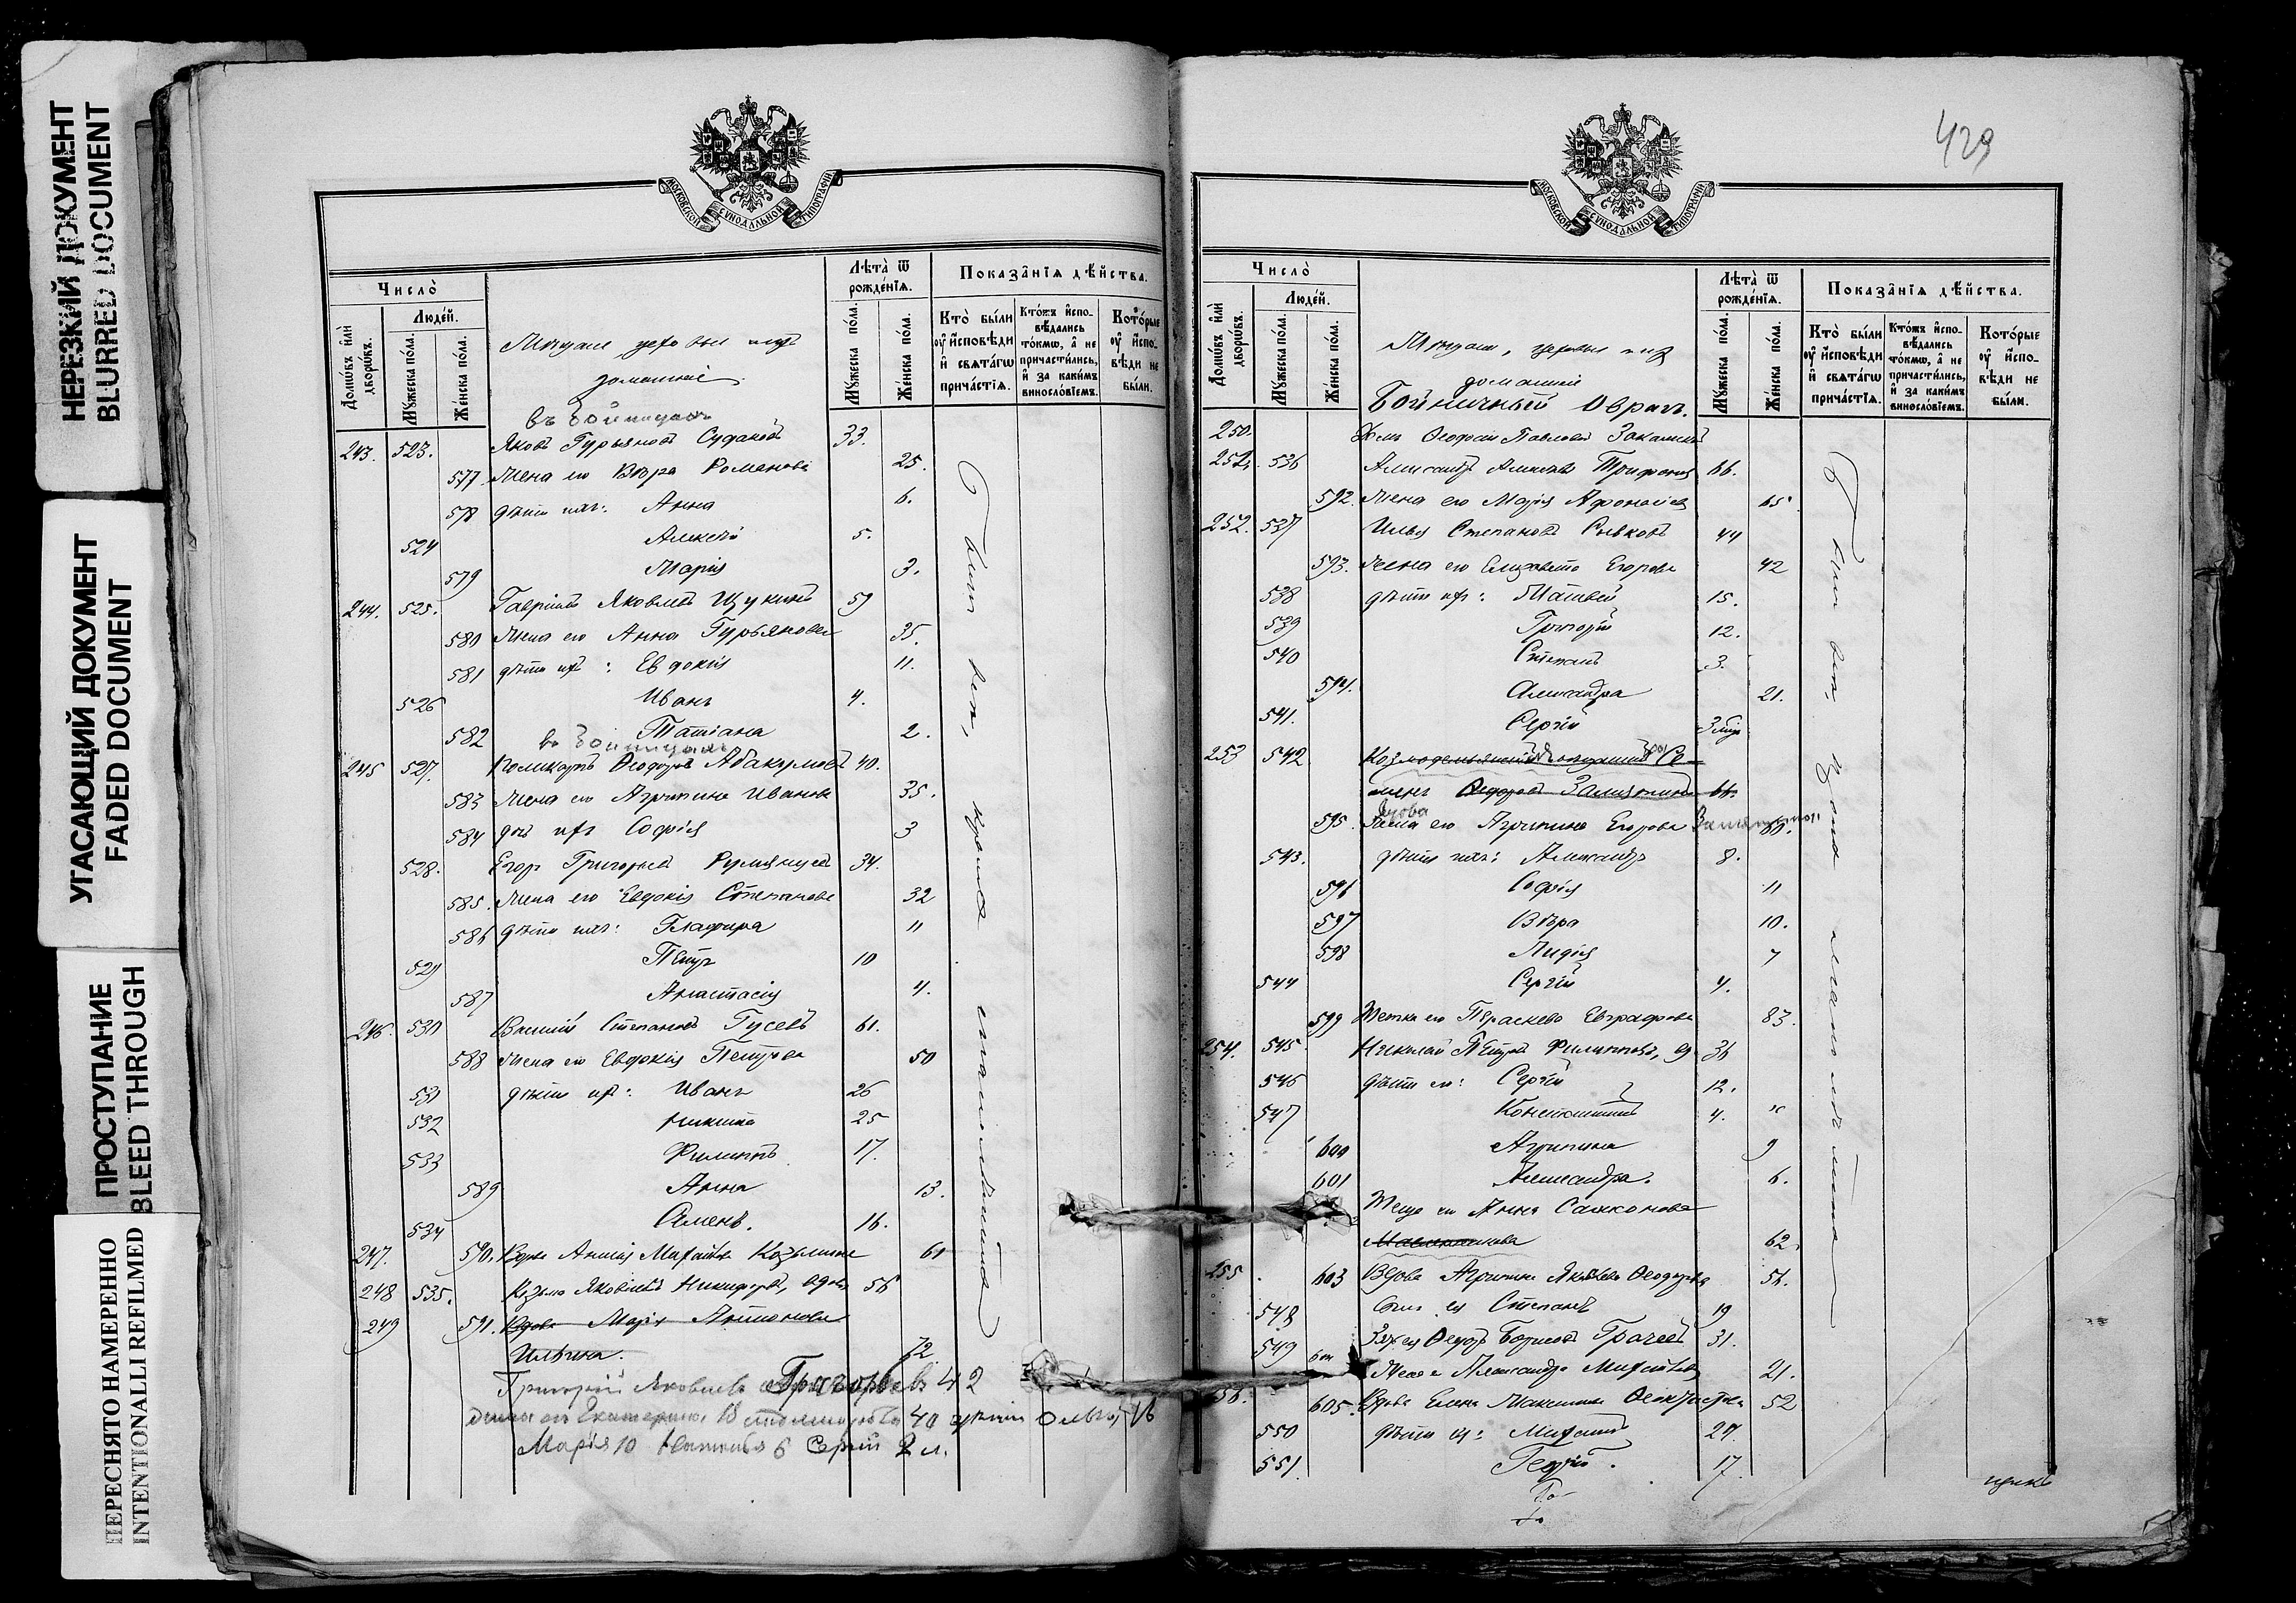 НЕРЕЗКИЙ ДОКУМЕНТ
BLURRED DOCUMENT
УГАСАЮЩИЙ ДОКУМЕНТ
FADED DOCUMENT
ПРОСТУПАНИЕ
BLEED THROUGH
ПЕРЕСНЯТО НАМЕРЕННО
INTENTIONALLI REFILMED
МОСКОВСКОЙ СУНОДАЛЬНОЙ ТИПОГРАФІИ
Число̀
Людей.
Домѡвъ и҆лѝ дворѡвъ.
Мꙋжеска по́ла.
Же́нска по́ла.
Лѣта̀ ѿ рожде́нїѧ.
Мꙋжеска по́ла.
Же́нска по́ла.
Показа̂нїѧ дѣ́йства.
Кто̀ бы́ли ᲂу҆ и҆сповѣди и҆ свѧта́гѡ прича́стїѧ.
Кто́жъ и҆спо-вѣдались то́кмѡ, а҆ не причасти́лись, и҆ за каки́мъ винословіемъ.
Кото́рые ᲂу҆ и҆спо-вѣди не бы́ли.
домашніе
въ Бойницахъ
243. 523. Яковъ Гурьяновъ Судаковъ 33.
577. Жена его Вѣра Романова 25.
578 дѣти ихъ: Анна 6.
524 Алексѣй 5.
579 Марія 3.
244. 525. Гавріилъ Яковлевъ Щукинъ 59
580 Жена его Анна Гурьянова 35.
581 дѣти ихъ: Евдокія 11.
526 Иванъ 4.
582 Татіана 2.
въ Бойницахъ
245 527. Поликарпъ Ѳеодоровъ Абакумовъ 40.
583 Жена его Агрипина Иванова 35.
584 дочь ихъ Софія 3
528. Егоръ Григорьевъ Румянцевъ 34.
585. Жена его Евдокія Степанова 32
586 дѣти ихъ: Глафира 11
529 Петръ 10
587 Анастасія 4.
246. 530 Василій Степановъ Гусевъ 61.
588 Жена его Евдокія Петрова 50
531 дѣти ихъ: Иванъ 26
532 Никита 25
533 Филиппъ 17.
589 Анна 13.
534 Семенъ. 16.
247. 590. Вдова Михайлова Козьмина 61
248 535. Козьма Яковлевъ Никифоровъ, вдовъ 56
249 591. Вдова Марія Антонова
Ильина. 72
Григорій Яковлевъ Григорьевъ 42
жена его Екатерина 40 Ольга 16
Марія 10 Наталья 6 Сергій 2 л.
Были вси, кромѣ малолѣтнихъ
429
МОСКОВСКОЙ СУНОДАЛЬНОЙ ТИПОГРАФІИ
Число̀
Людей.
Домѡвъ и҆лѝ дворѡвъ.
Мꙋжеска по́ла.
Же́нска по́ла.
Лѣта̀ ѿ рожде́нїѧ.
Мꙋжеска по́ла.
Же́нска по́ла.
Показа̂нїѧ дѣ́йства.
Кто̀ бы́ли ᲂу҆ и҆сповѣди и҆ свѧта́гѡ прича́стїѧ.
Кто́жъ и҆спо-вѣдались то́кмѡ, а҆ не причасти́лись, и҆ за каки́мъ винословіемъ.
Кото́рые ᲂу҆ и҆спо-вѣди не бы́ли.
домашніе
Бойничный Оврагъ.
250. Ѳеодосій Павловъ
536 Александръ Трифоновъ 66.
592. Жена его Марія Афонасьева 65
252. 537 Илья Степановъ Сывковъ 44
593. Жена его Елизавета Егорова 42
538 дѣти ихъ: Матвей 15.
539 Григорій 12.
540 Степанъ 3.
594. Александра 21.
541. Сергій
253 542
595. Вдова Агрипина Егорова 60.
543. дѣти ихъ: Александръ 8.
596 Софія 11
597 Вѣра 10.
598 Лидія 7
544 Сергій 4.
599 Тетка его Параскева Евграфова 83.
254. 545. Николай Петровъ Филипповъ, вд 36
546 дѣти его: Сергій 12.
547 Константинъ 4.
600 Агрипина 9
601 Александра. 6.
Теща его Анна
62.
255 603 Вдова Агрипина Яковлева Ѳеодорова 56.
548 Сынъ ея Степанъ 19
549 Зять ея Ѳедоръ Борисовъ Грачевъ 31.
604 Жена его Александра Михайлова 21.
256. 605. Вдова Елена Максимова 52
550 дѣти ея: Михаилъ 27.
551 Георгій. 17.
Были вси, кромѣ малолѣтнихъ